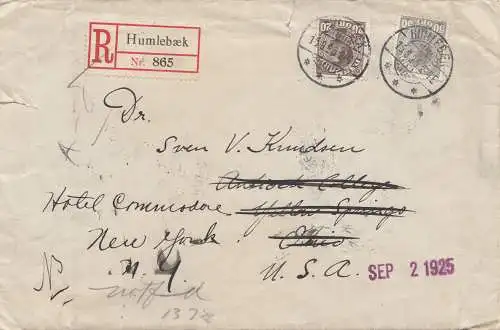 R Humlebæk
Nr. 865
20
Dr.
Sven V. Knudsen
Antioch College
Hotel Commodore Yellow Springs
New York Ohio
N. Y. U. S. A.
SEP 2 1925
notfd
1372